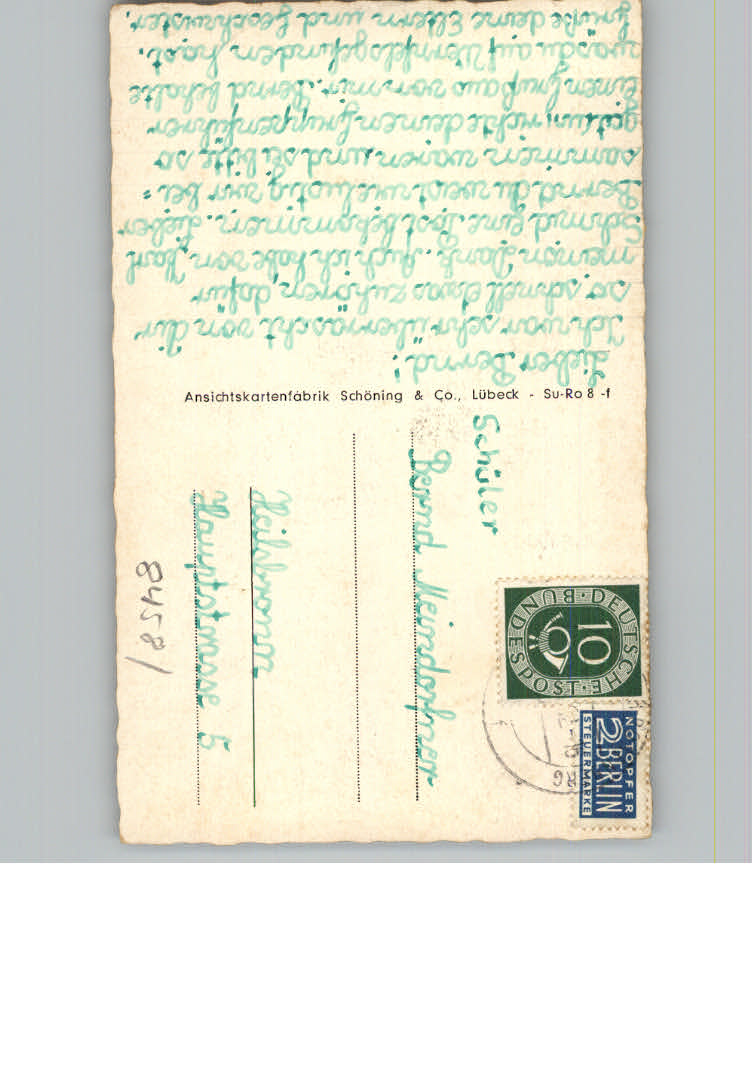 Lieber Bernd!
Ich war sehr überrascht von dir
so schnell etwas zuhören, dafür
meinen Dank. Auch ich habe von Karl
Schmid eine Post bekommen. Lieber
Bernd du weist wie lustig wir bei=
sammen waren und sei bitte so
gut un richte deinem Gruppenführer
einen Gruß aus von mir. Bernd behalte
was du auf Wernfels gefunden hast.
Grüße deine Eltern und Geschwister.
Ansichtskartenfabrik Schöning & Co., Lübeck - Su-Ro 8 -f
Schüler
Bernd Meindorfner
Heilsbronn
Hauptstrasse 5
8458/
DEUTSCHE BUNDESPOST
10
NOTOPFER
2 BERLIN
STEUERMARKE